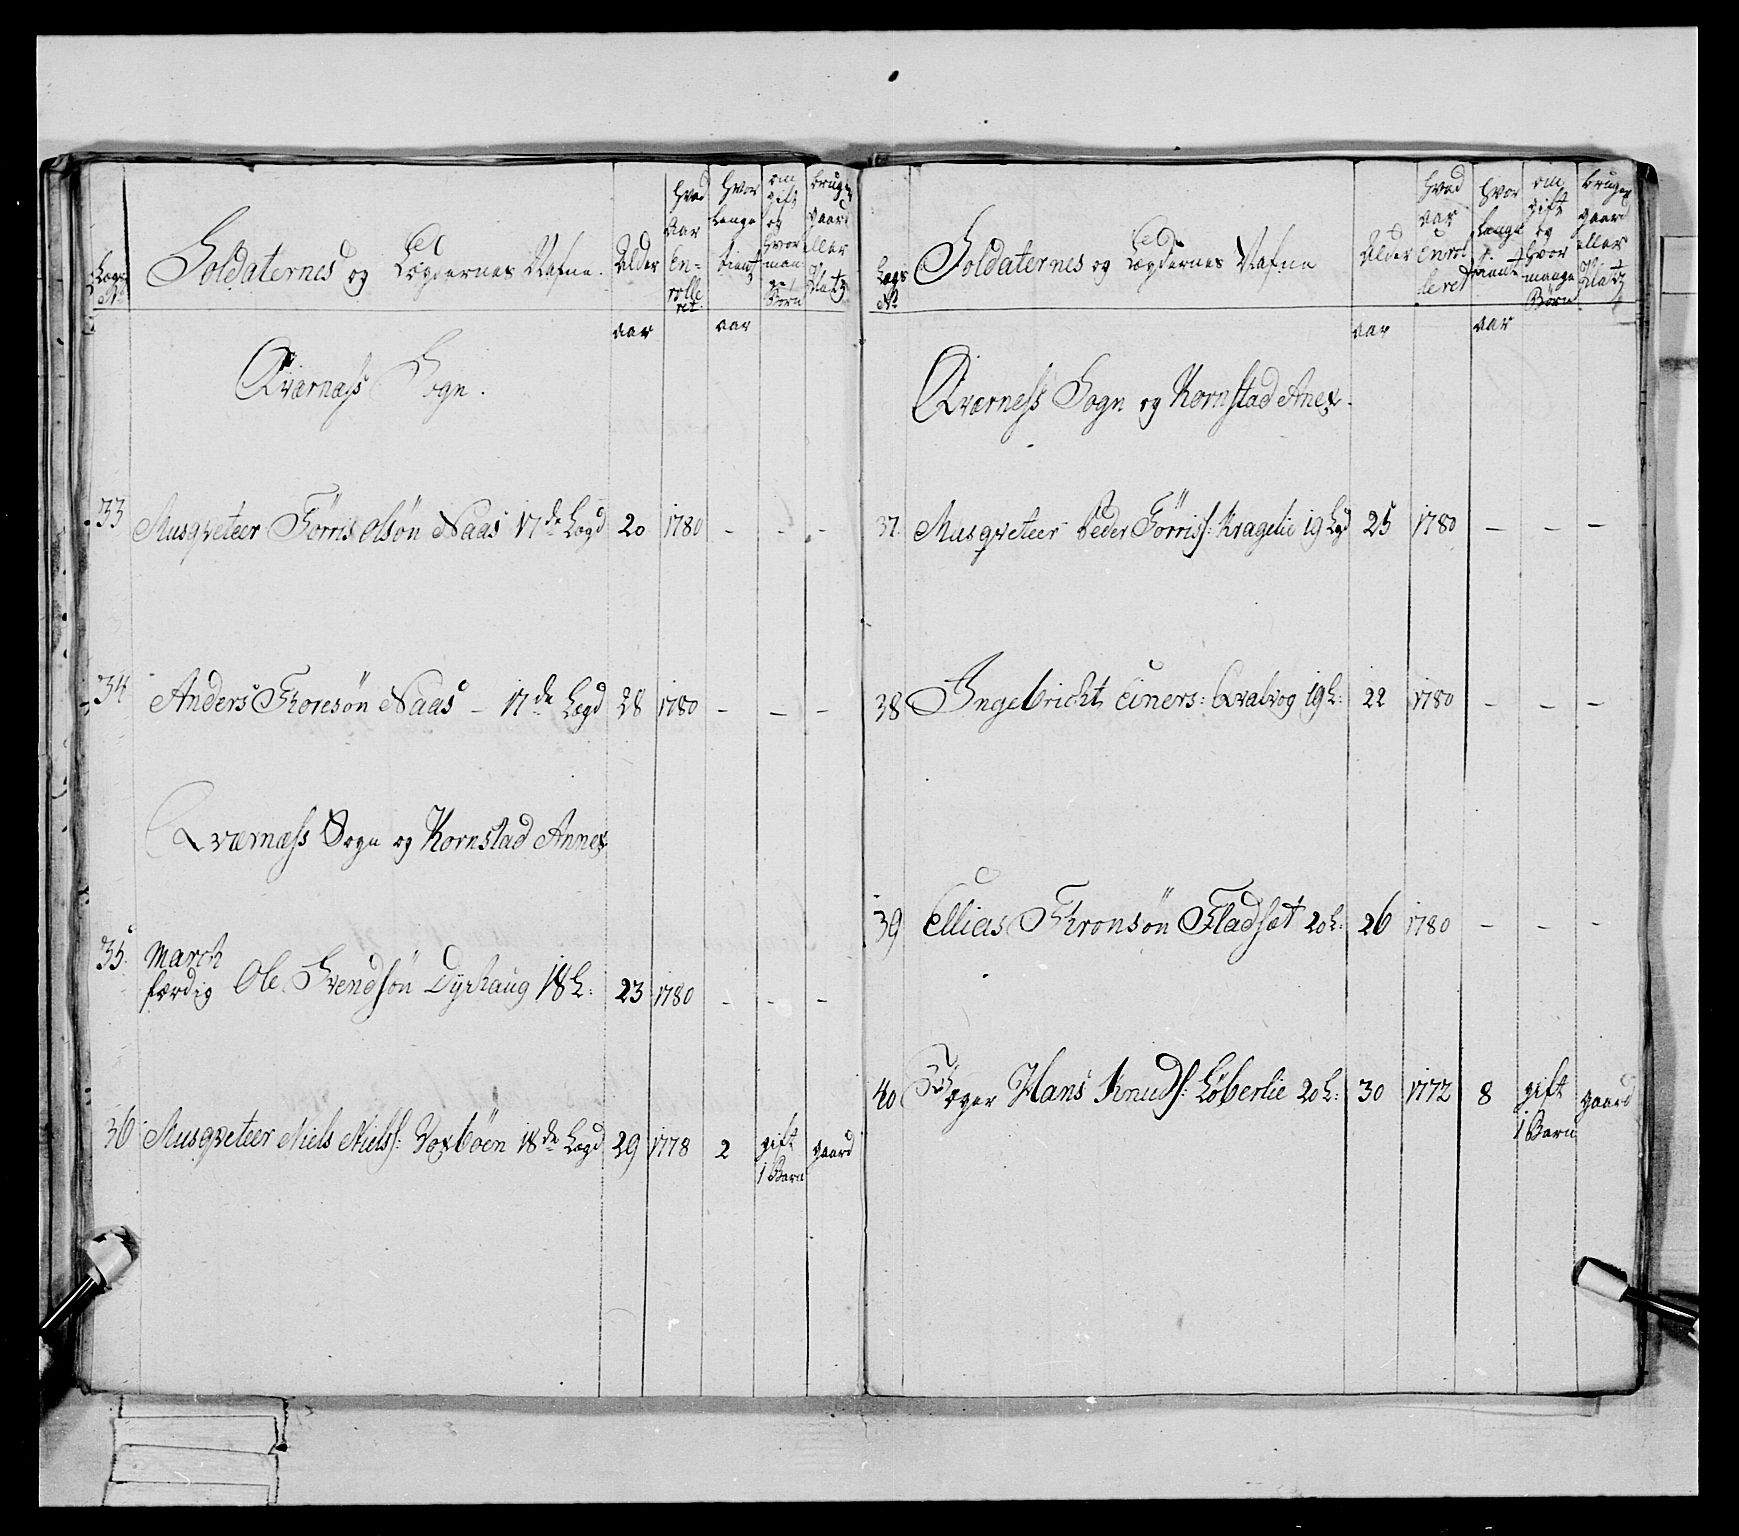 Soldaternes og Lægdernes Nafne. Alder hvad Aar Enrolleret hvor længe tient om gift og hvor mange Børn bruger gaard eller Platz
aar aar
Qværnæss Sogn.
33 Musqveteer Förris Olsön Naas 17de Lægd 20 1780 - - -
34 Anders Thoresön Naas - 17de Lægd 28 1780 - - -
Qværnæss Sogn og Kornstad Annex
35. March
færdig Ole Svendsön Dyrhaug 18 L: 23 1780 - - -
36 Musqveteer Niels Nielss: Voxböen 18de Lægd 29 1778 2 gift gaard
1 Barn
Lægs No Soldaternes og Lægdernes Nafne Alder hvad aar Enrolleret hvor længe tient om gift og hvor mange Börn bruger gaard eller Platz
aar aar
Qværness Sogn og Kornstad Anex.
37. Musqveteer Peder Förriss: Kragelie 19 Lgd 25 1780 - - -
38 Ingebricht Einers: Qvalvog 19 L: 22 1780 - - -
39 Ellias Thronsön Fladsæt 20 L: 26 1780 - - -
40 Jæger Hans Knuds: Löberlie 20 L: 30 1772 8 gift gaard
1 Barn